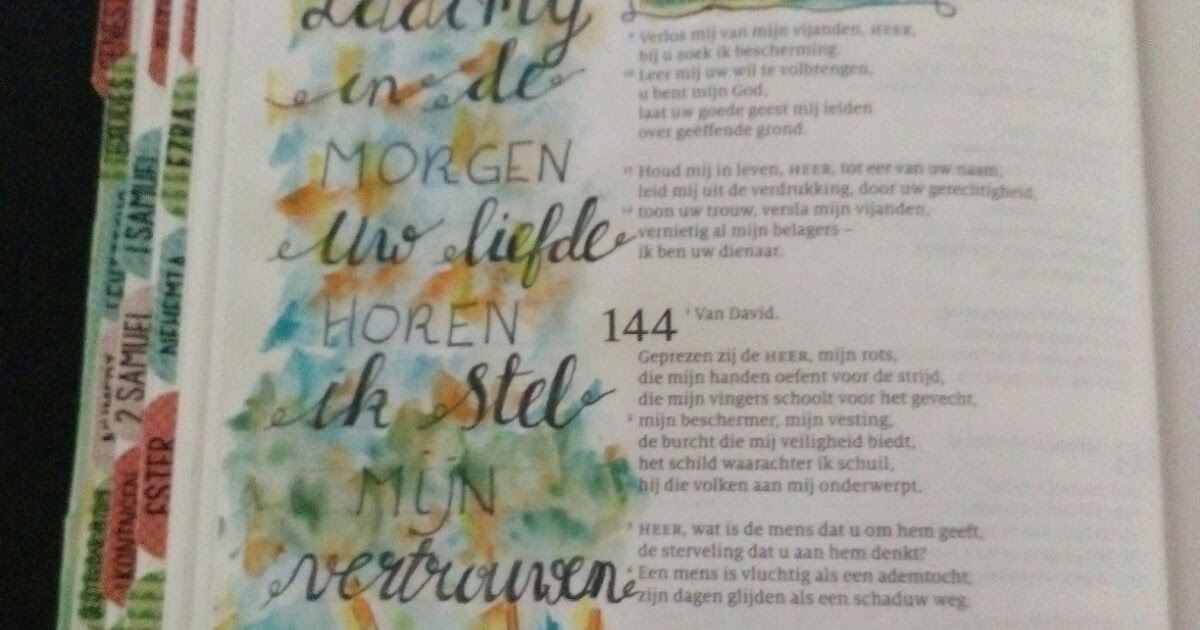 Laat mij
in de
MORGEN
Uw liefde
HOREN
ik stel
MIJN
vertrouwen
9 Verlos mij van mijn vijanden, HEER,
bij u zoek ik bescherming.
10 Leer mij uw wil te volbrengen,
u bent mijn God,
laat uw goede geest mij leiden
over geëffende grond.
11 Houd mij in leven, HEER, tot eer van uw naam,
leid mij uit de verdrukking, door uw gerechtigheid.
12 toon uw trouw, versla mijn vijanden,
vernietig al mijn belagers –
ik ben uw dienaar.
144 1 Van David.
Geprezen zij de HEER, mijn rots,
die mijn handen oefent voor de strijd,
die mijn vingers schoolt voor het gevecht,
2 mijn beschermer, mijn vesting,
de burcht die mij veiligheid biedt,
het schild waarachter ik schuil,
hij die volken aan mij onderwerpt.
3 HEER, wat is de mens dat u om hem geeft,
de sterveling dat u aan hem denkt?
4 Een mens is vluchtig als een ademtocht,
zijn dagen glijden als een schaduw weg.
GENESIS
EXODUS
LEVITICUS
1 SAMUEL
2 SAMUEL
EZRA
NEHEMIA
ESTER